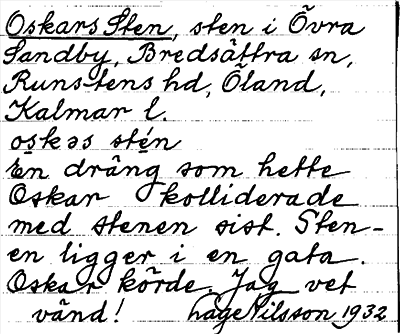 Oskars Sten, sten i Övra
Sandby, Bredsättra sn,
Runstens hd, Öland,
Kalmar l.
oskəs stén
En dräng som hette
Oskar kolliderade
med stenen sist. Sten-
en ligger i en gata.
Oskar körde. Jag vet
vänd! Lage Nilsson 1932